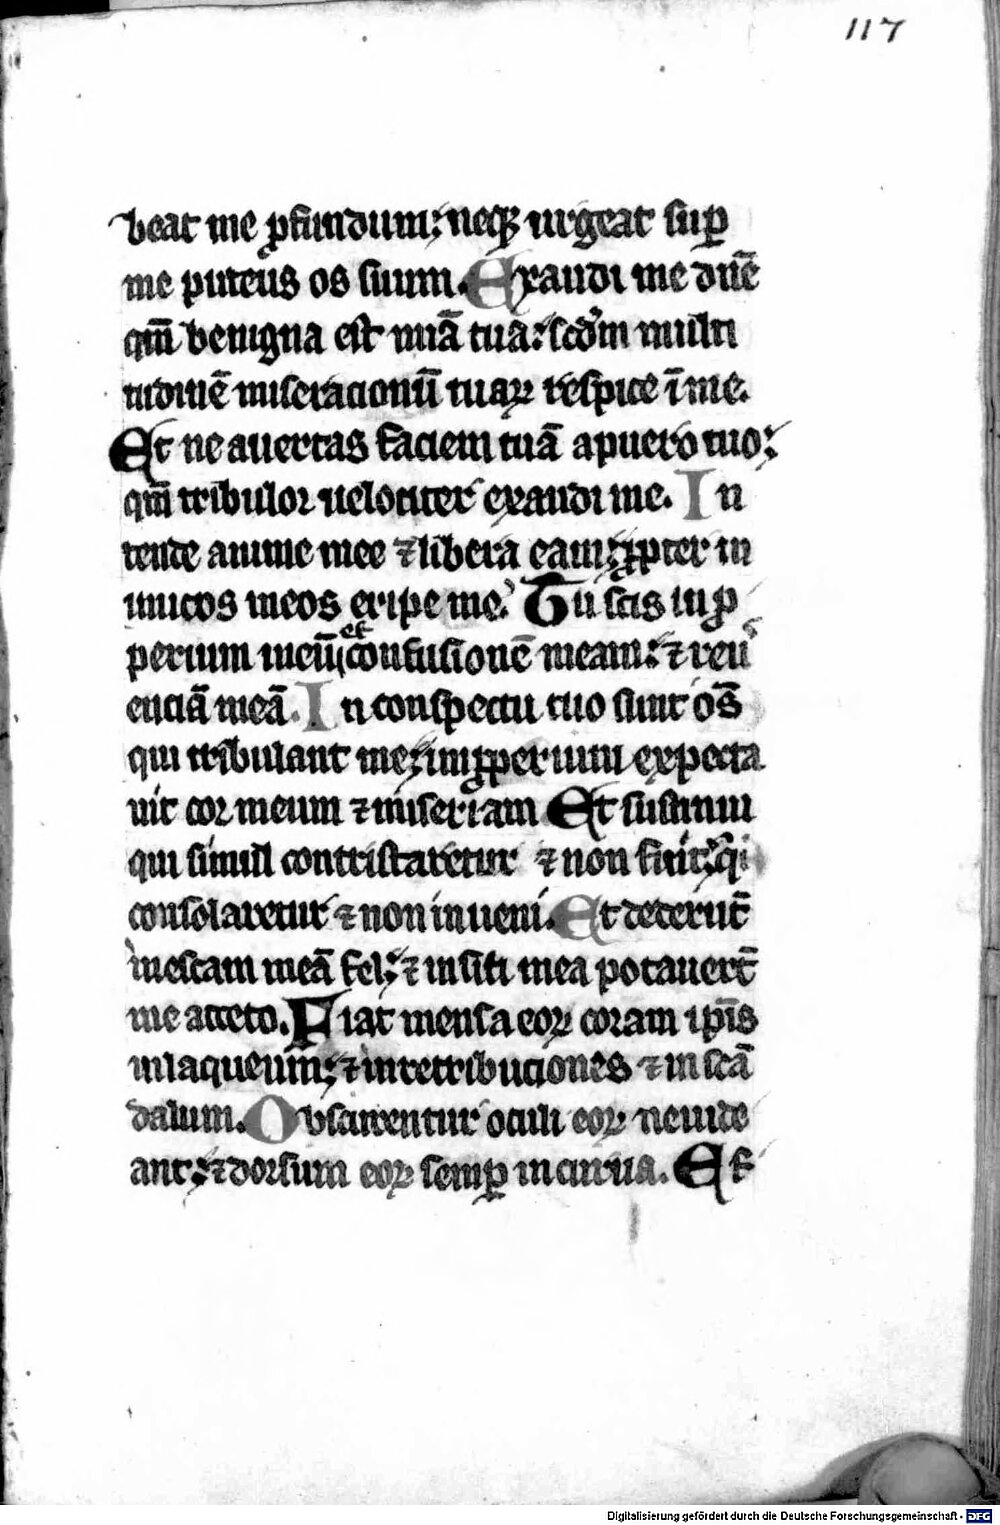 117
beat me ꝓfundum; neqꝫ urgeat suꝑ
me puteus os suum. Exaudi me dn̄e
qm̄ benigna est mīa tua: scdm multi
tudinē miseracionū tuaꝝ respice ī me.
Et ne auertas faciem tuā a puero tuo:
qm̄ tribulor uelociter exaudi me. In
tende anime mee ⁊ libera eam: ꝓpter in
imicos meos eripe me. Tu scis inꝓ
perium meū et confusionē meam: ⁊ reu
enciā meā. In conspectu tuo sunt om̄s
qui tribulant me: inꝓperium expecta
uit cor meum ⁊ miseriam Et sustinui
qui simul contristaretur ⁊ non fuit: qi
consolaretur ⁊ non inueni. Et dederūt
in escam meā fel: ⁊ in siti mea potauerūt
me aceto. Fiat mensa eoꝝ coram ip̄is
in laqueum: ⁊ in retribuciones ⁊ in scā
dalum. Obscurentur oculi eoꝝ ne uide
ant: ⁊ dorsum eoꝝ semꝑ incurua. Ef
Digitalisierung gefördert durch die Deutsche Forschungsgemeinschaft - DFG